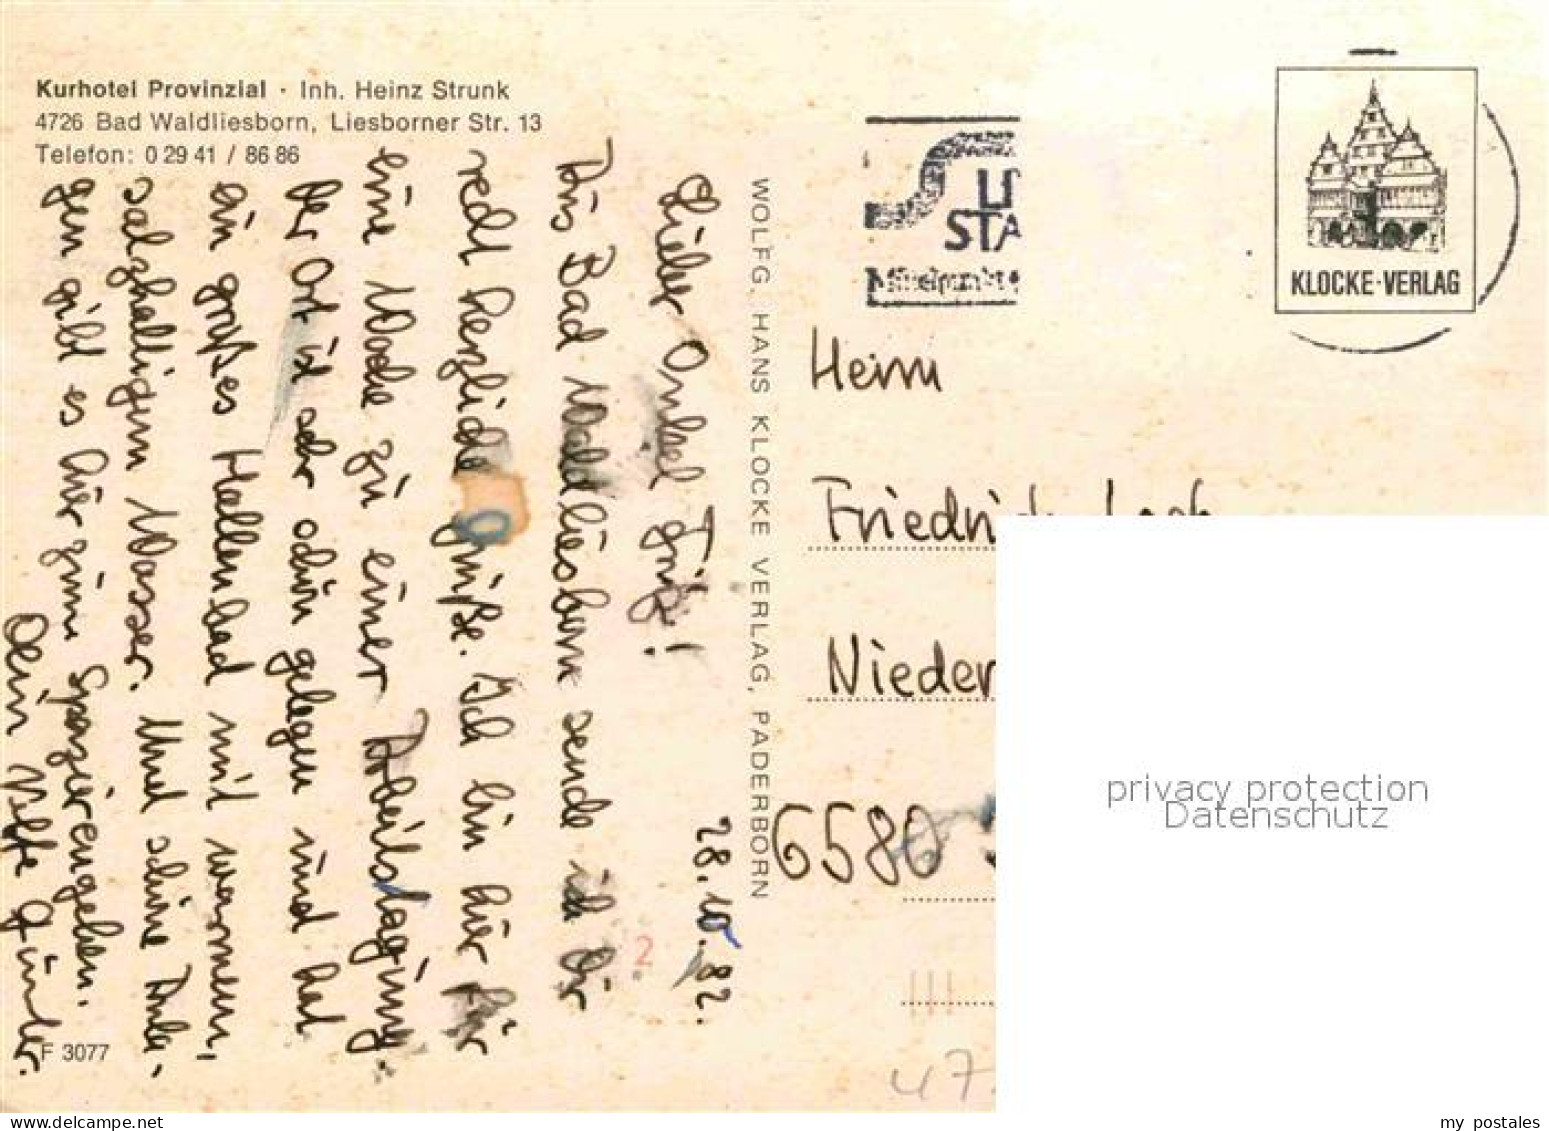 Kurhotel Provinzial · Inh. Heinz Strunk
4726 Bad Waldliesborn, Liesborner Str. 13
Telefon: 0 29 41 / 86 86
28.10.82.
Lieber Onkel Fritz!
Aus Bad Waldliesborn sende ich Dir
recht herzliche Grüße. Ich bin hier für
eine Woche zu einer Arbeitstagung.
Der Ort ist sehr schön gelegen und hat
ein großes Hallenbad mit warmem,
salzhaltigem Wasser. Und schöne Anla-
gen gibt es hier zum Spazierengehen.
Dein Neffe Günter.
F 3077
WOLFG. HANS KLOCKE VERLAG, PADERBORN
LI
STA
Mittelpunkt
KLOCKE-VERLAG
Herrn
Friedrich
Nieder
6580
2
47.
privacy protection
Datenschutz
my postales